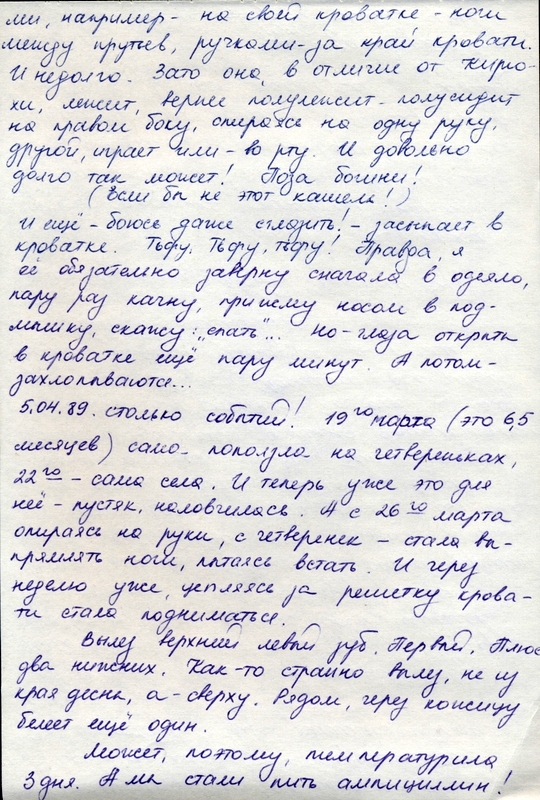 ми, например - на своей кроватке - ноги
между прутьев, ручками - за край кровати.
И недолго. Зато она, в отличие от Кирю-
хи, лежит, вернее полулежит - полусидит
на правом боку, опираясь на одну руку,
другой, играет или - во рту. И довольно
долго так может! Поза богини!
(Если бы не этот кашель!)
И ещё - боюсь даже сглазить! - засыпает в
кроватке. Тьфу, тьфу, тьфу! Правда, я
её обязательно заверну сначала в одеяло,
пару раз качну, прижму носом в под-
мышку, скажу: "спать"... но - глаза открыты
в кроватке ещё пару минут. А потом -
захлопываются...
5.04.89. Столько событий! 19го марта (это 6,5
месяцев) само- поползла на четвереньках,
22го - сама села. И теперь уже это для
неё - пустяк, наловчилась. А с 26го марта
опираясь на руки, с четверенек - стала вы-
прямлять ноги, пытаясь встать. И через
неделю уже, цепляясь за решетку крова-
ти стала подниматься.
Вылез верхний левый зуб. Первый. Плюс
два нижних. Как-то странно вылез, не из
края десны, а - сверху. Рядом, через
белеет ещё один.
Может, поэтому, температурила
3 дня. А мы стали пить ампициллин!